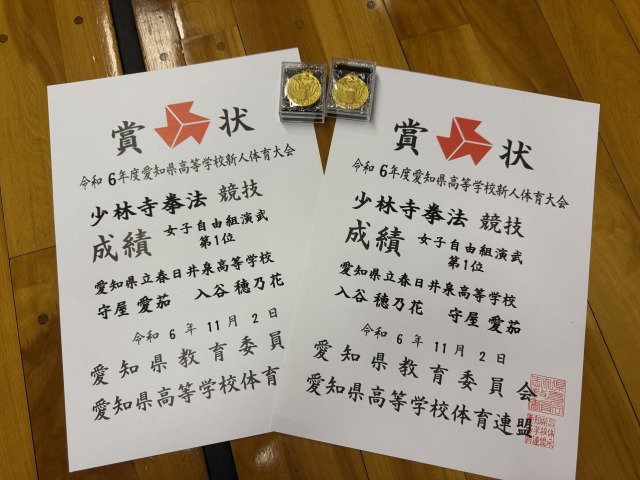 賞状
令和6年度愛知県高等学校新人体育大会
少林寺拳法 競技
成績 女子自由組演武
第1位
愛知県立春日井泉高等学校
守屋 愛茄 入谷 穂乃花
令和 6 年 11 月 2 日
愛知県教育委員
愛知県高等学校体育
賞状
令和6年度愛知県高等学校新人体育大会
少林寺拳法 競技
成績 女子自由組演武
第1位
愛知県立春日井泉高等学校
入谷 穂乃花 守屋 愛茄
令和 6 年 11 月 2 日
愛知県教育委員会
愛知県高等学校体育連盟